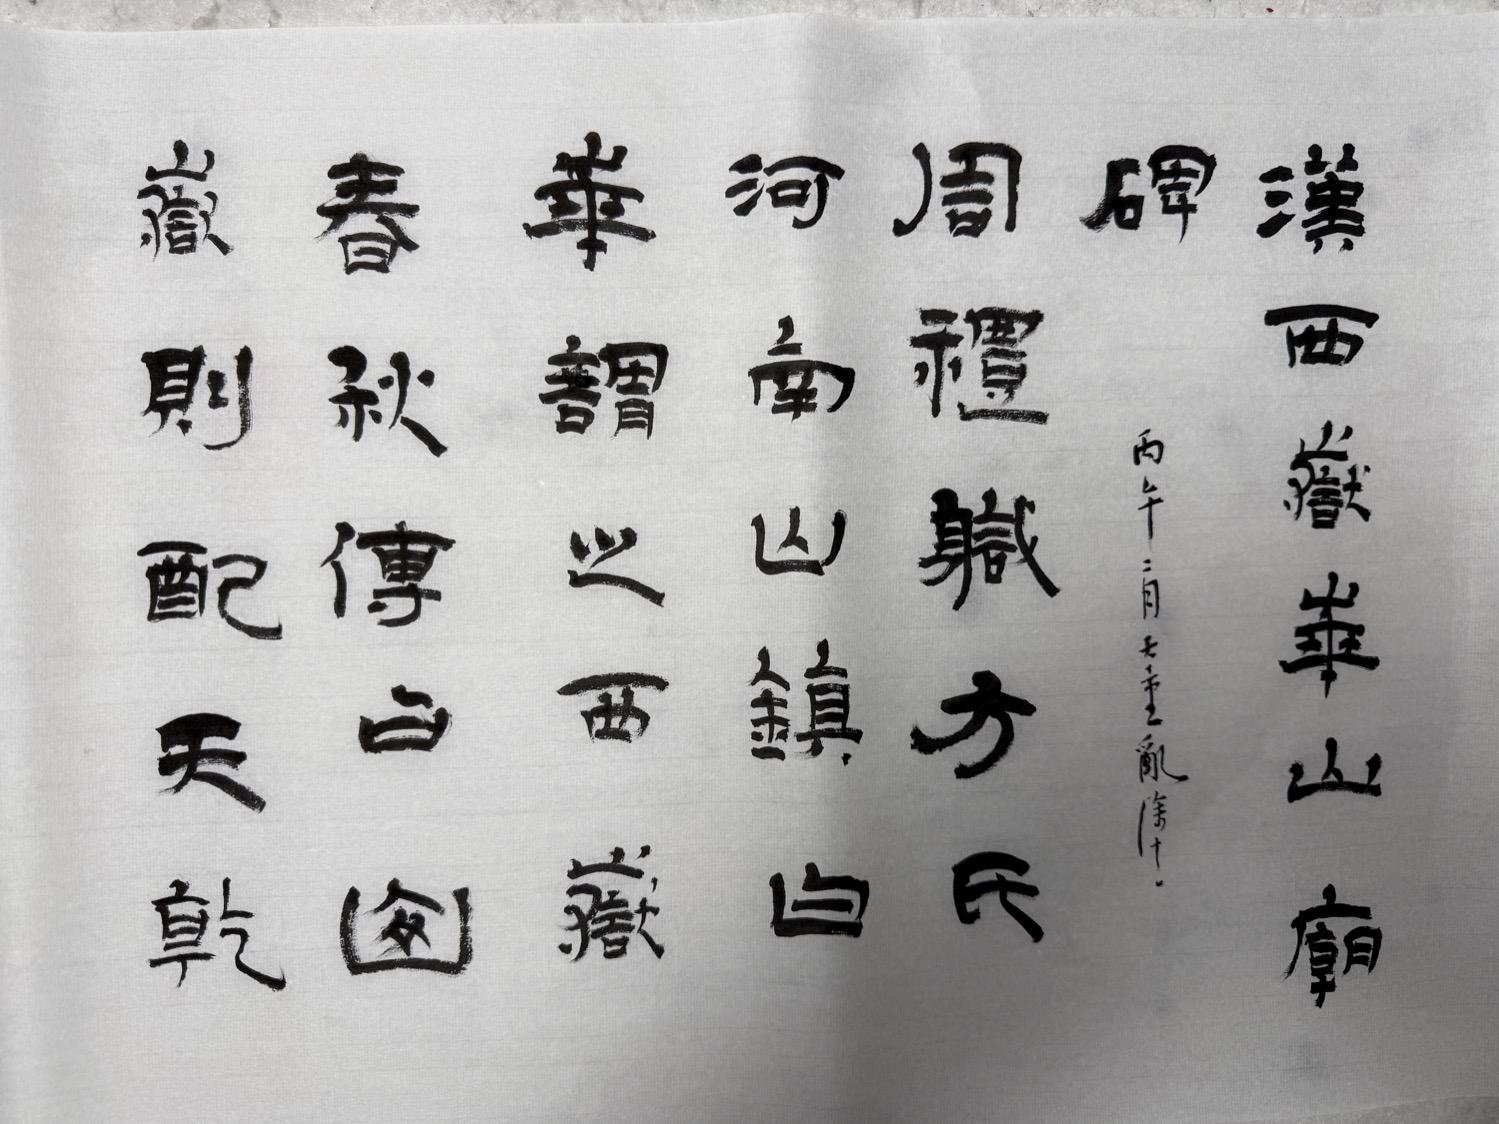 漢西嶽華山廟
碑
丙午二月童亂塗
周禮職方氏
河南山鎮曰
華謂之西嶽
春秋傳曰山
嶽則配天乾